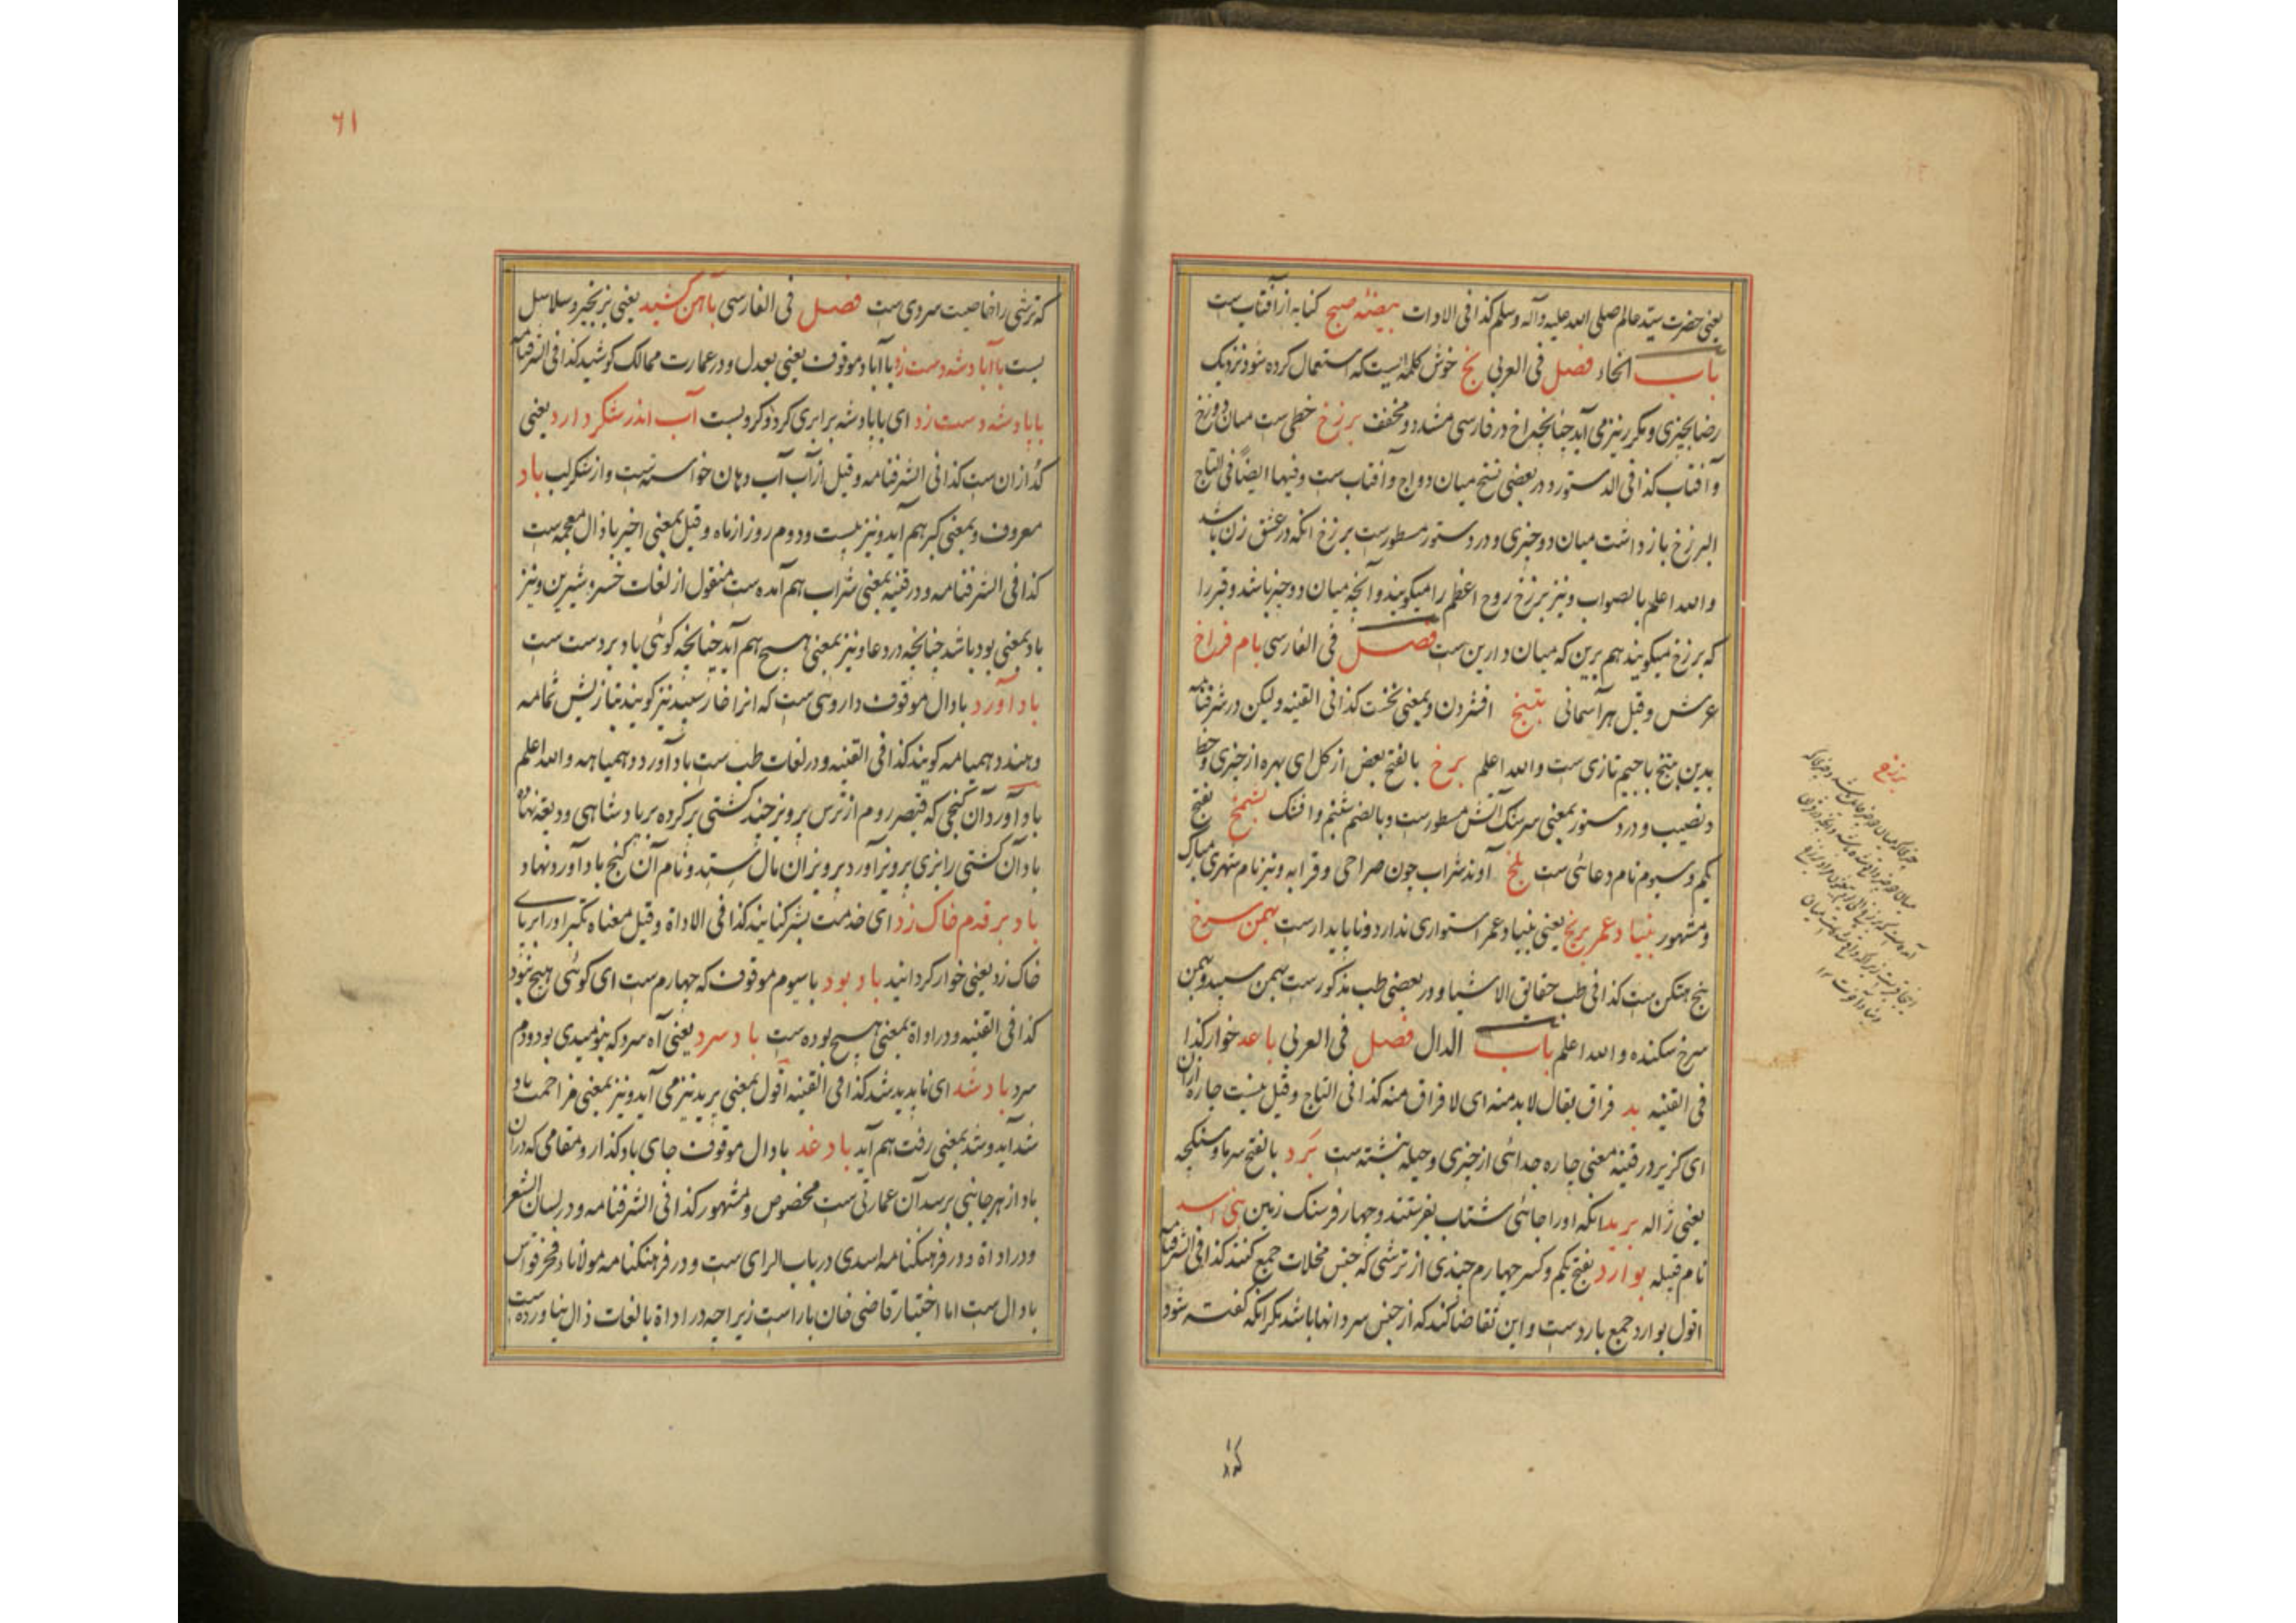 یعنی حضرت سید عالم صلی الله علیه وآله وسلم کذا فی الادات بیضهٔ صبح کنایه از آفتاب ست
باب الخاء فصل فی العربی بخ خوش کلمه ایست که استعمال کرده شود نزدیک
رضا بچیزی و مکرر نیز می آید چنانچه بخ اخ در فارسی مشدد و مخفف برزخ خطی ست میان دوزخ
و آفتاب کذا فی الدستور و در بعضی نسخ میان دواج و آفتاب ست وفیها ایضًا فی التاج
البرزخ بازداشت میان دو چیزی و در دستور مسطور ست برزخ آنکه در عشق زن باشد
والله اعلم بالصواب ونیز برزخ روح اعظم را میگویند و آنچه میان دو چیز باشد و قبر را
که برزخ میگویند هم برین که میان دارین ست فصل فی الفارسی بام فراخ
عرش وقیل هر آسمانی بتنج افشردن و بمعنی نخست کذا فی القنیه ولیکن در شرفنامه
بدین بتنج با جیم تازی ست والله اعلم برخ بالفتح بعض از کل ای بهره از چیزی و حظ
و نصیب و در دستور بمعنی سرسنک آتش مسطور ست و بالضم شبنم و افشک بفتح
یکم و سیوم نام دعائی ست بلخ آوند شراب چون صراحی و قرابه و نیز نام شهری مبارک
و مشهور بنیاد عمر بریخ یعنی بنیاد عمر استواری ندارد و ناپایدار ست بهمن سرخ
بیخ ست کذا فی طب حقایق الاشیا و در بعضی طب مذکور ست بهمن سپید و بهمن
سرخ سکنده والله اعلم باب الدال فصل فی العربی باعد خوار کذا
فی القنیه بد فراق یقال لابد منه ای لا فراق منه کذا فی التاج وقیل نیست چاره ازان
ای گزیر در قنیه معنی چاره جدائی از چیزی و حیله نبشته ست برد بالفتح سرما و سنکچه
یعنی ژاله برید آنکه اورا جائی شتاب بفرستند و چهار فرسنک زمین بنی اسد
نام قبیله بوارد بفتح یکم و کسر چهارم چیزی از ترشی که جنس مخللات جمع کنند کذا فی الشرفنامه
اقول بوارد جمع بارد ست و این تقاضا کند که از جنس سرد انها باشد مگر آنکه گفته شود
برزخ
که ترشی را خاصیت سردی ست فصل فی الفارسی بآهن کشید یعنی بزنجیر و سلاسل
بست باآباد شه دست زد باآباد موقوف یعنی بعدل و در عمارت ممالک کوشید کذا فی الشرفنامه
بابادشه دست زد ای بابادشه برابری کرد و کرو بست آب اندر شکر دارد یعنی
گدازان ست کذا فی الشرفنامه وقیل از آب آب دهان خواسته ست و از شکر لب باد
معروف و بمعنی کبر هم آید ونیز بیست و دوم روز از ماه وقیل بمعنی اخیر با ذال معجمه ست
کذا فی الشرفنامه و در قنیه بمعنی شراب هم آمده ست منقول از لغات خسرو شیرین ونیز
باد بمعنی بود باشد چنانچه در دعا و نیز بمعنی هیچ هم آید چنانچه گوئی باد بر دست ست
بادآورد با دال موقوف داروئی ست که انرا خار سپید نیز گویند بتازیش ثمامه
و هندوهمیامه گویند کذا فی القنیه و در لغات طب ست بادآورد دهمیاهه والله اعلم
بادآورد آن گنجی که قیصر روم از ترس پرویز چند کشتی پر کرده بر بادشاهی ودیعة نهاده
باد آن کشتی را بنزدی پرویز آورد پرویز ان مال بستد و نام آن گنج بادآورد نهاد
باد بر قدم خاک زد ای خدمت بشر کنایند کذا فی الاداة وقیل معناه تکبر اورا بر پای
خاک زد یعنی خوار گردانید باد بود با سیوم موقوف که چهارم ست ای گوئی هیچ نبود
کذا فی القنیه و در اداة بمعنی هیچ بوده ست باد سرد یعنی آه سرد که بنومیدی بود ودم
سرد باد شد ای ناپدید شد کذا فی القنیه اقول بمعنی پرید نیز می آید ونیز بمعنی مزاحمت باد
شد آید و شد بمعنی رفت هم آید باد غد با دال موقوف جای باد گذار و مقامی که دران
باد از هر جانبی برسد آن عمارتی ست مخصوص و مشهور کذا فی الشرفنامه و در لسان الشعرا
و در اداة و در فرهنگنامه اسدی در باب الرای ست و در فرهنگنامه مولانا فخر قواس
با دال ست اما اختیار قاضی خان باراست زیراچه در اداة بالغات ذال نیاورده ست
۶۱